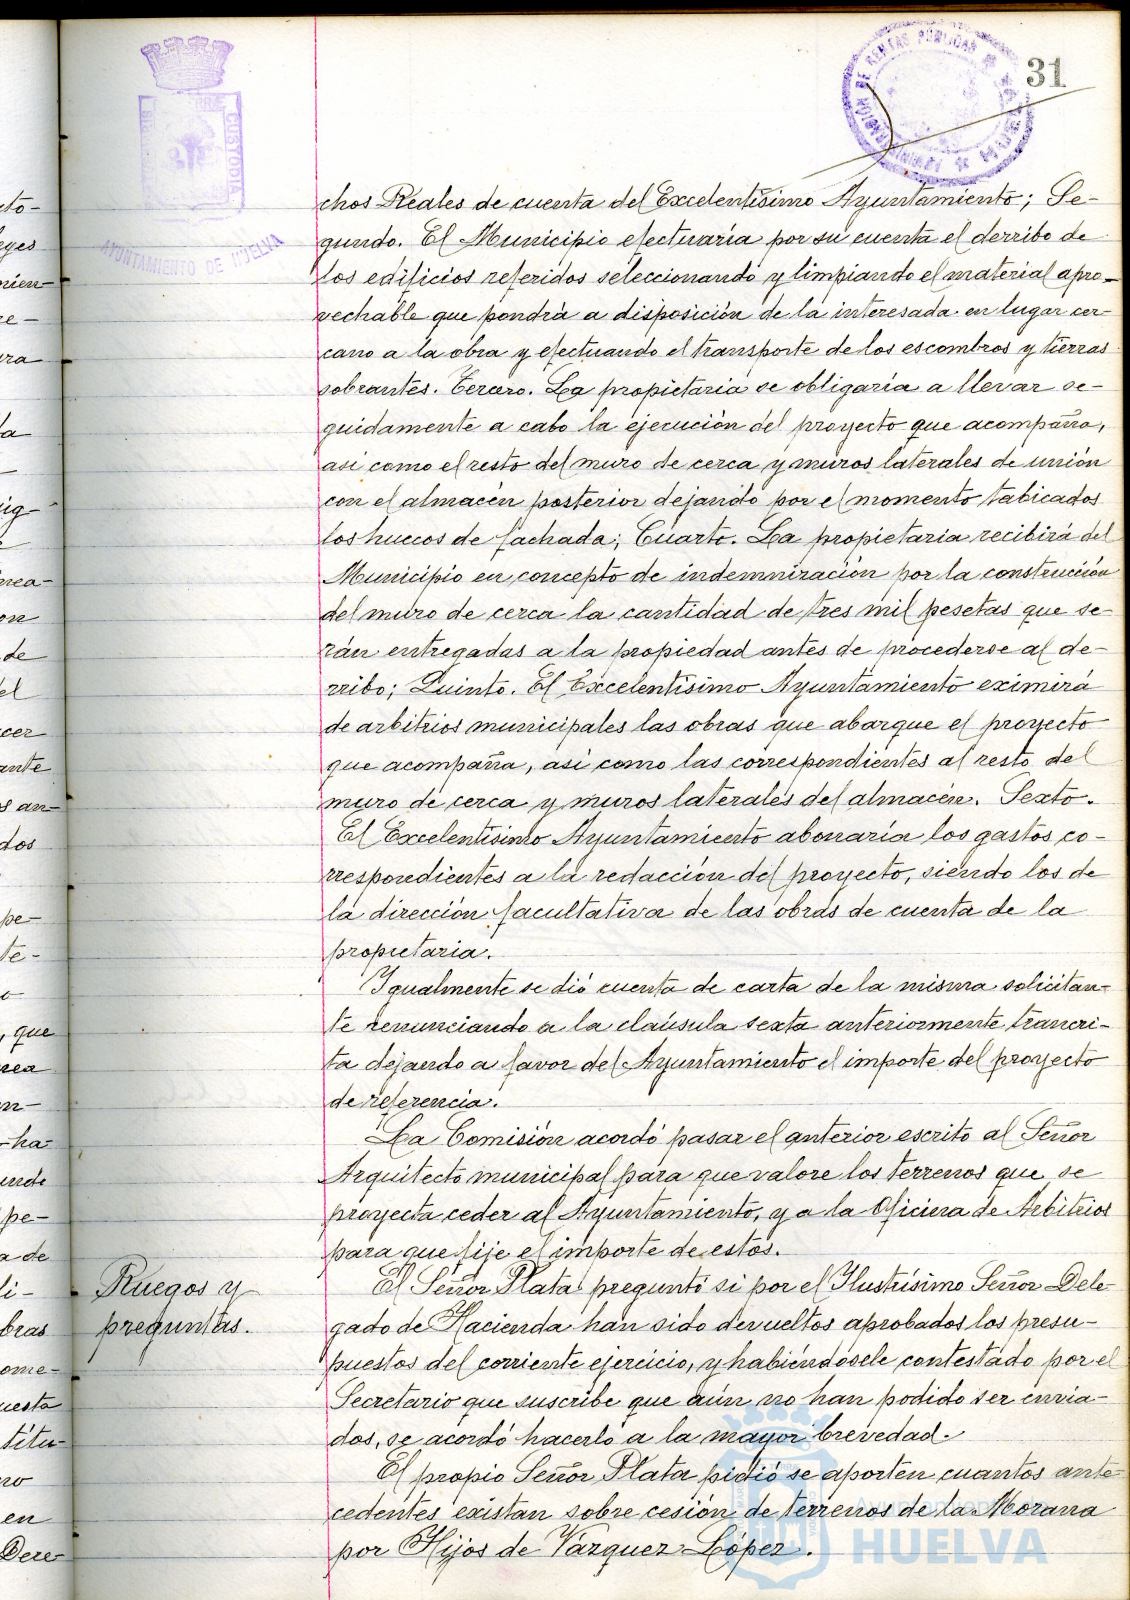 31
ADMINISTRACIÓN DE RENTAS PÚBLICAS
HUELVA
CUSTODIA
AYUNTAMIENTO DE HUELVA
chos Reales de cuenta del Excelentísimo Ayuntamiento; Se-
gundo. El Municipio efectuaría por su cuenta el derribo de
los edificios referidos seleccionando y limpiando el material apro-
vechable que pondrá a disposición de la interesada en lugar cer-
cano a la obra y efectuando el transporte de los escombros y tierras
sobrantes. Tercero. La propietaria se obligaría a llevar se-
guidamente a cabo la ejecución del proyecto que acompaña,
así como el resto del muro de cerca y muros laterales de unión
con el almacén posterior dejando por el momento tabicados
los huecos de fachada; Cuarto. La propietaria recibirá del
Municipio en concepto de indemnización por la construcción
del muro de cerca la cantidad de tres mil pesetas que se-
rán entregadas a la propiedad antes de procederse al de-
rribo; Quinto. El Excelentísimo Ayuntamiento eximirá
de arbitrios municipales las obras que abarque el proyecto
que acompaña, así como las correspondientes al resto del
muro de cerca y muros laterales del almacén. Sexto.
El Excelentísimo Ayuntamiento abonaría los gastos co-
rrespondientes a la redacción del proyecto, siendo los de
la dirección facultativa de las obras de cuenta de la
propietaria.
Igualmente se dió cuenta de carta de la misma solicitan-
te renunciando a la claúsula sexta anteriormente trancri-
ta dejando a favor del Ayuntamiento el importe del proyecto
de referencia.
La Comisión acordó pasar el anterior escrito al Señor
Arquitecto municipal para que valore los terrenos que se
proyecta ceder al Ayuntamiento, y a la Oficina de Arbitrios
para que fije el importe de estos.
Ruegos y
preguntas.
El Señor Plata preguntó si por el Ilustrísimo Señor Dele-
gado de Hacienda han sido devueltos aprobados los presu-
puestos del corriente ejercicio, y habiéndosele contestado por el
Secretario que suscribe que aún no han podido ser envia-
dos, se acordó hacerlo a la mayor brevedad.
El propio Señor Plata pidió se aporten cuantos ante-
cedentes existan sobre cesión de terrenos de la Morana
por Hijos de Vázquez López.
Ayuntamiento de
HUELVA